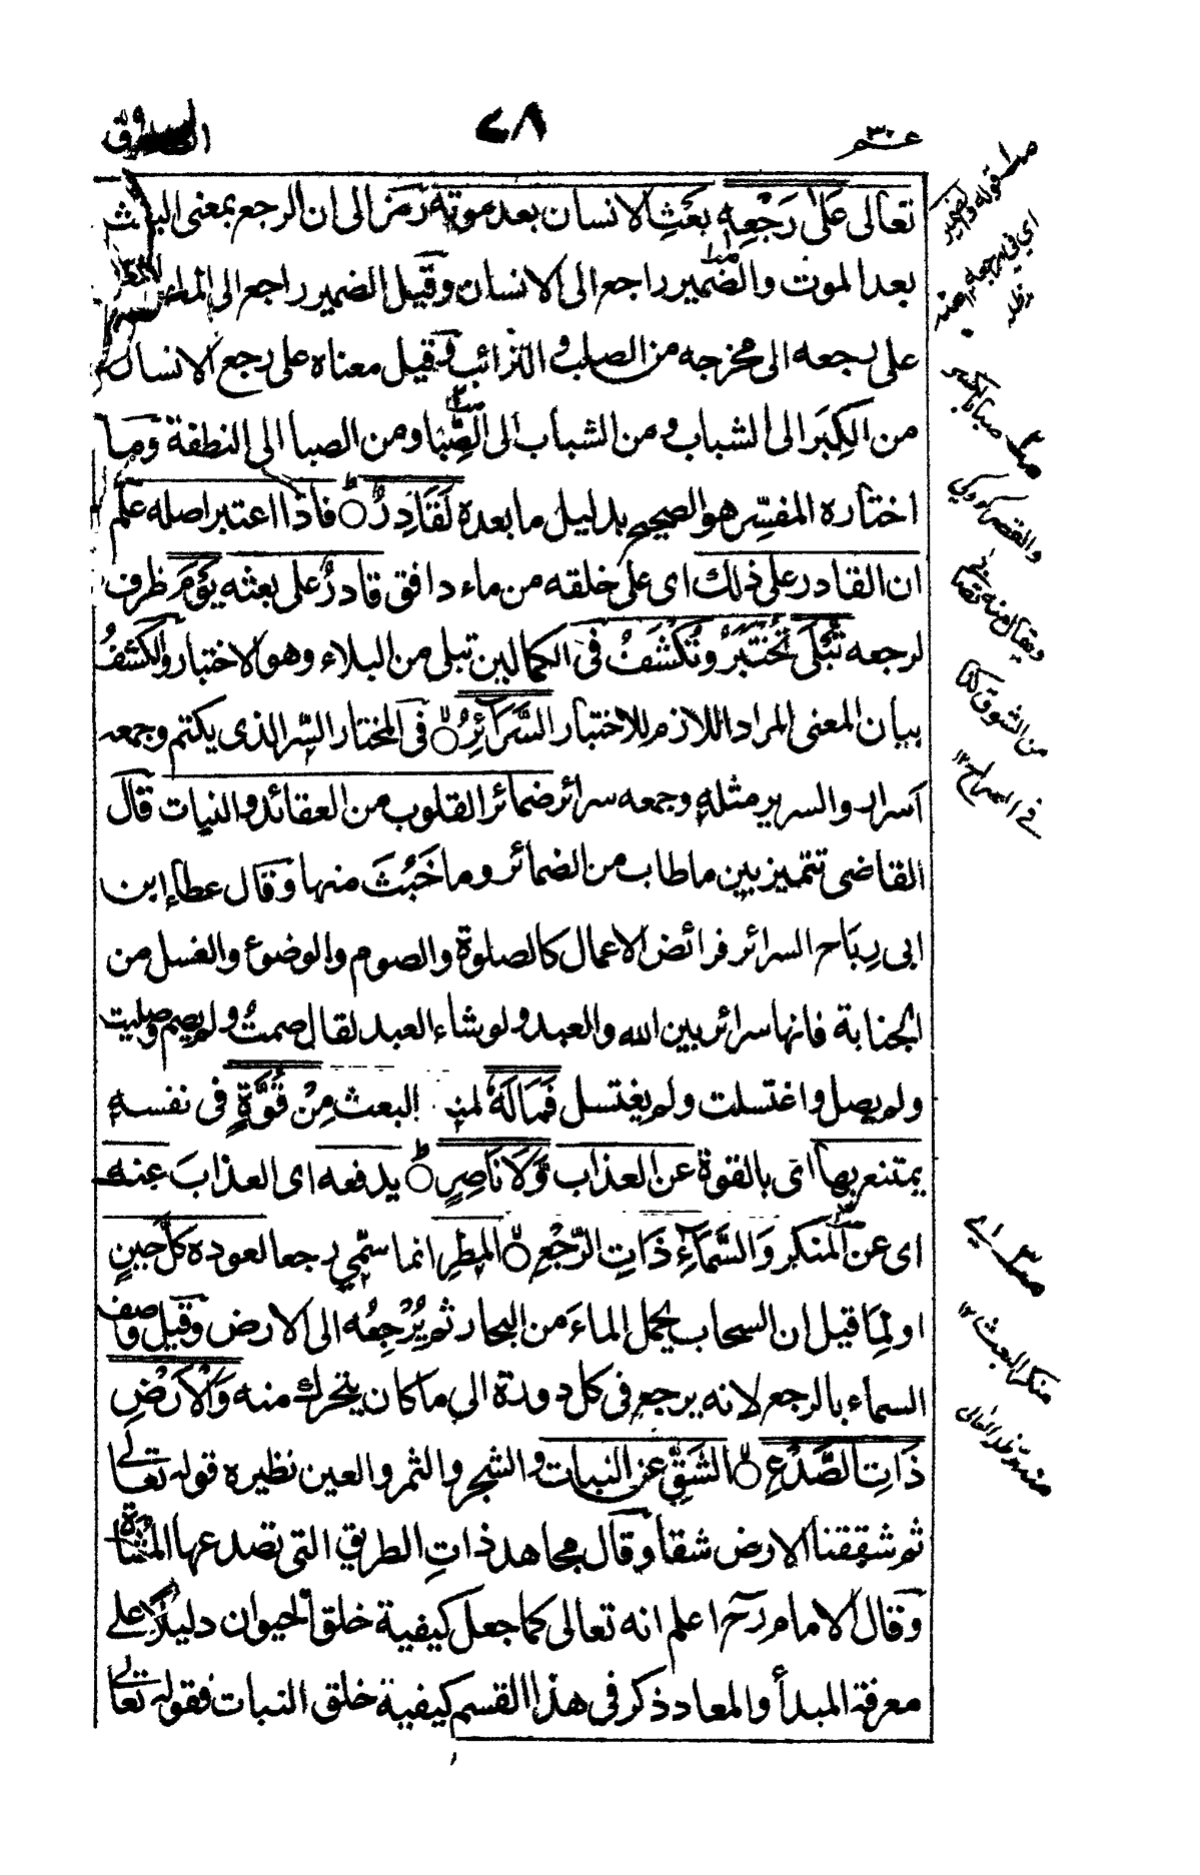 عم ٣٠
٧٨
تعالى عَلٰى رَجْعِهٖ بَعْثِ الانسان بعد موته رمز الى ان الرجع بمعنى البعث
بعد الموت والضمير راجع الى الانسان وقيل الضمير راجع الى الماء
على رجعه الى مخرجه من الصلب والترائب وقيل معناه على رجع الانسان
من الكِبَر الى الشباب ومن الشباب الى الصِّبا ومن الصبا الى النطفة وما
اختاره المفسِّر هو الصحيح بدليل ما بعده لَقَادِرٌ ○ فاذا اعتبر اصله علم
ان القادر على ذلك اى على خلقه من ماء دافق قادرٌ على بعثه يَوْمَ ظرف
لرجعه تُبْلَى تُخْتَبَرُ وتُكْشَفُ فى الكمالين تبلى من البلاء وهو الاختبار والكشفُ
بيان المعنى المراد اللازم للاختبار السَّرَآئِرُ ○ فى المختار السِّر الذى يكتم وجمعه
اسرار والسرير مثله وجمعه سرائر ضمائر القلوب من العقائد والنيات قال
القاضى تتميز بين ما طاب من الضمائر وما خَبُثَ منها وقال عطاء ابن
ابى رِبَاح السرائر فرائض الاعمال كالصلوة والصوم والوضوء والغسل من
الجنابة فانها سرائر بين الله والعبد ولو شاء العبد لقال صمتُ ولم يصم وصليت
ولم يصل واغتسلت ولم يغتسل فَمَالَهٗ لمنكر البعث مِنْ قُوَّةٍ فى نفسهٖ
يمتنع بها اى بالقوة عن العذاب وَّلَا نَاصِرٍ ○ يدفعه اى العذابَ عنه
اى عن المنكر وَالسَّمَآءِ ذَاتِ الرَّجْعِ ○ المطر انما سمّى رجعا لعوده كلَّ حينٍ
او لِمَا قيل ان السحاب يحمل الماءَ من البحار ثم يُرْجِعُه الى الارض وقيل وصف
السماء بالرجع لانه يرجع فى كل دورة الى ما كان يتحرك منه وَالْاَرْضِ
ذَاتِ الصَّدْعِ ○ الشَّقّ عن النبات والشجر والثمر والعين نظيره قوله تعالى
ثم شققنا الارض شقا وقال مجاهد ذات الطريق التى تصدعها المشاة
وقال الامام رح اعلم انه تعالى كما جعل كيفية خلق الحيوان دليلا على
معرفة المبدأ والمعاد ذكر فى هذا القسم كيفية خلق النبات فقوله تعالى
والقصر او وكى
من الشوق كذا
فى الصراح ١٢
اى
منكر البعث ١٢